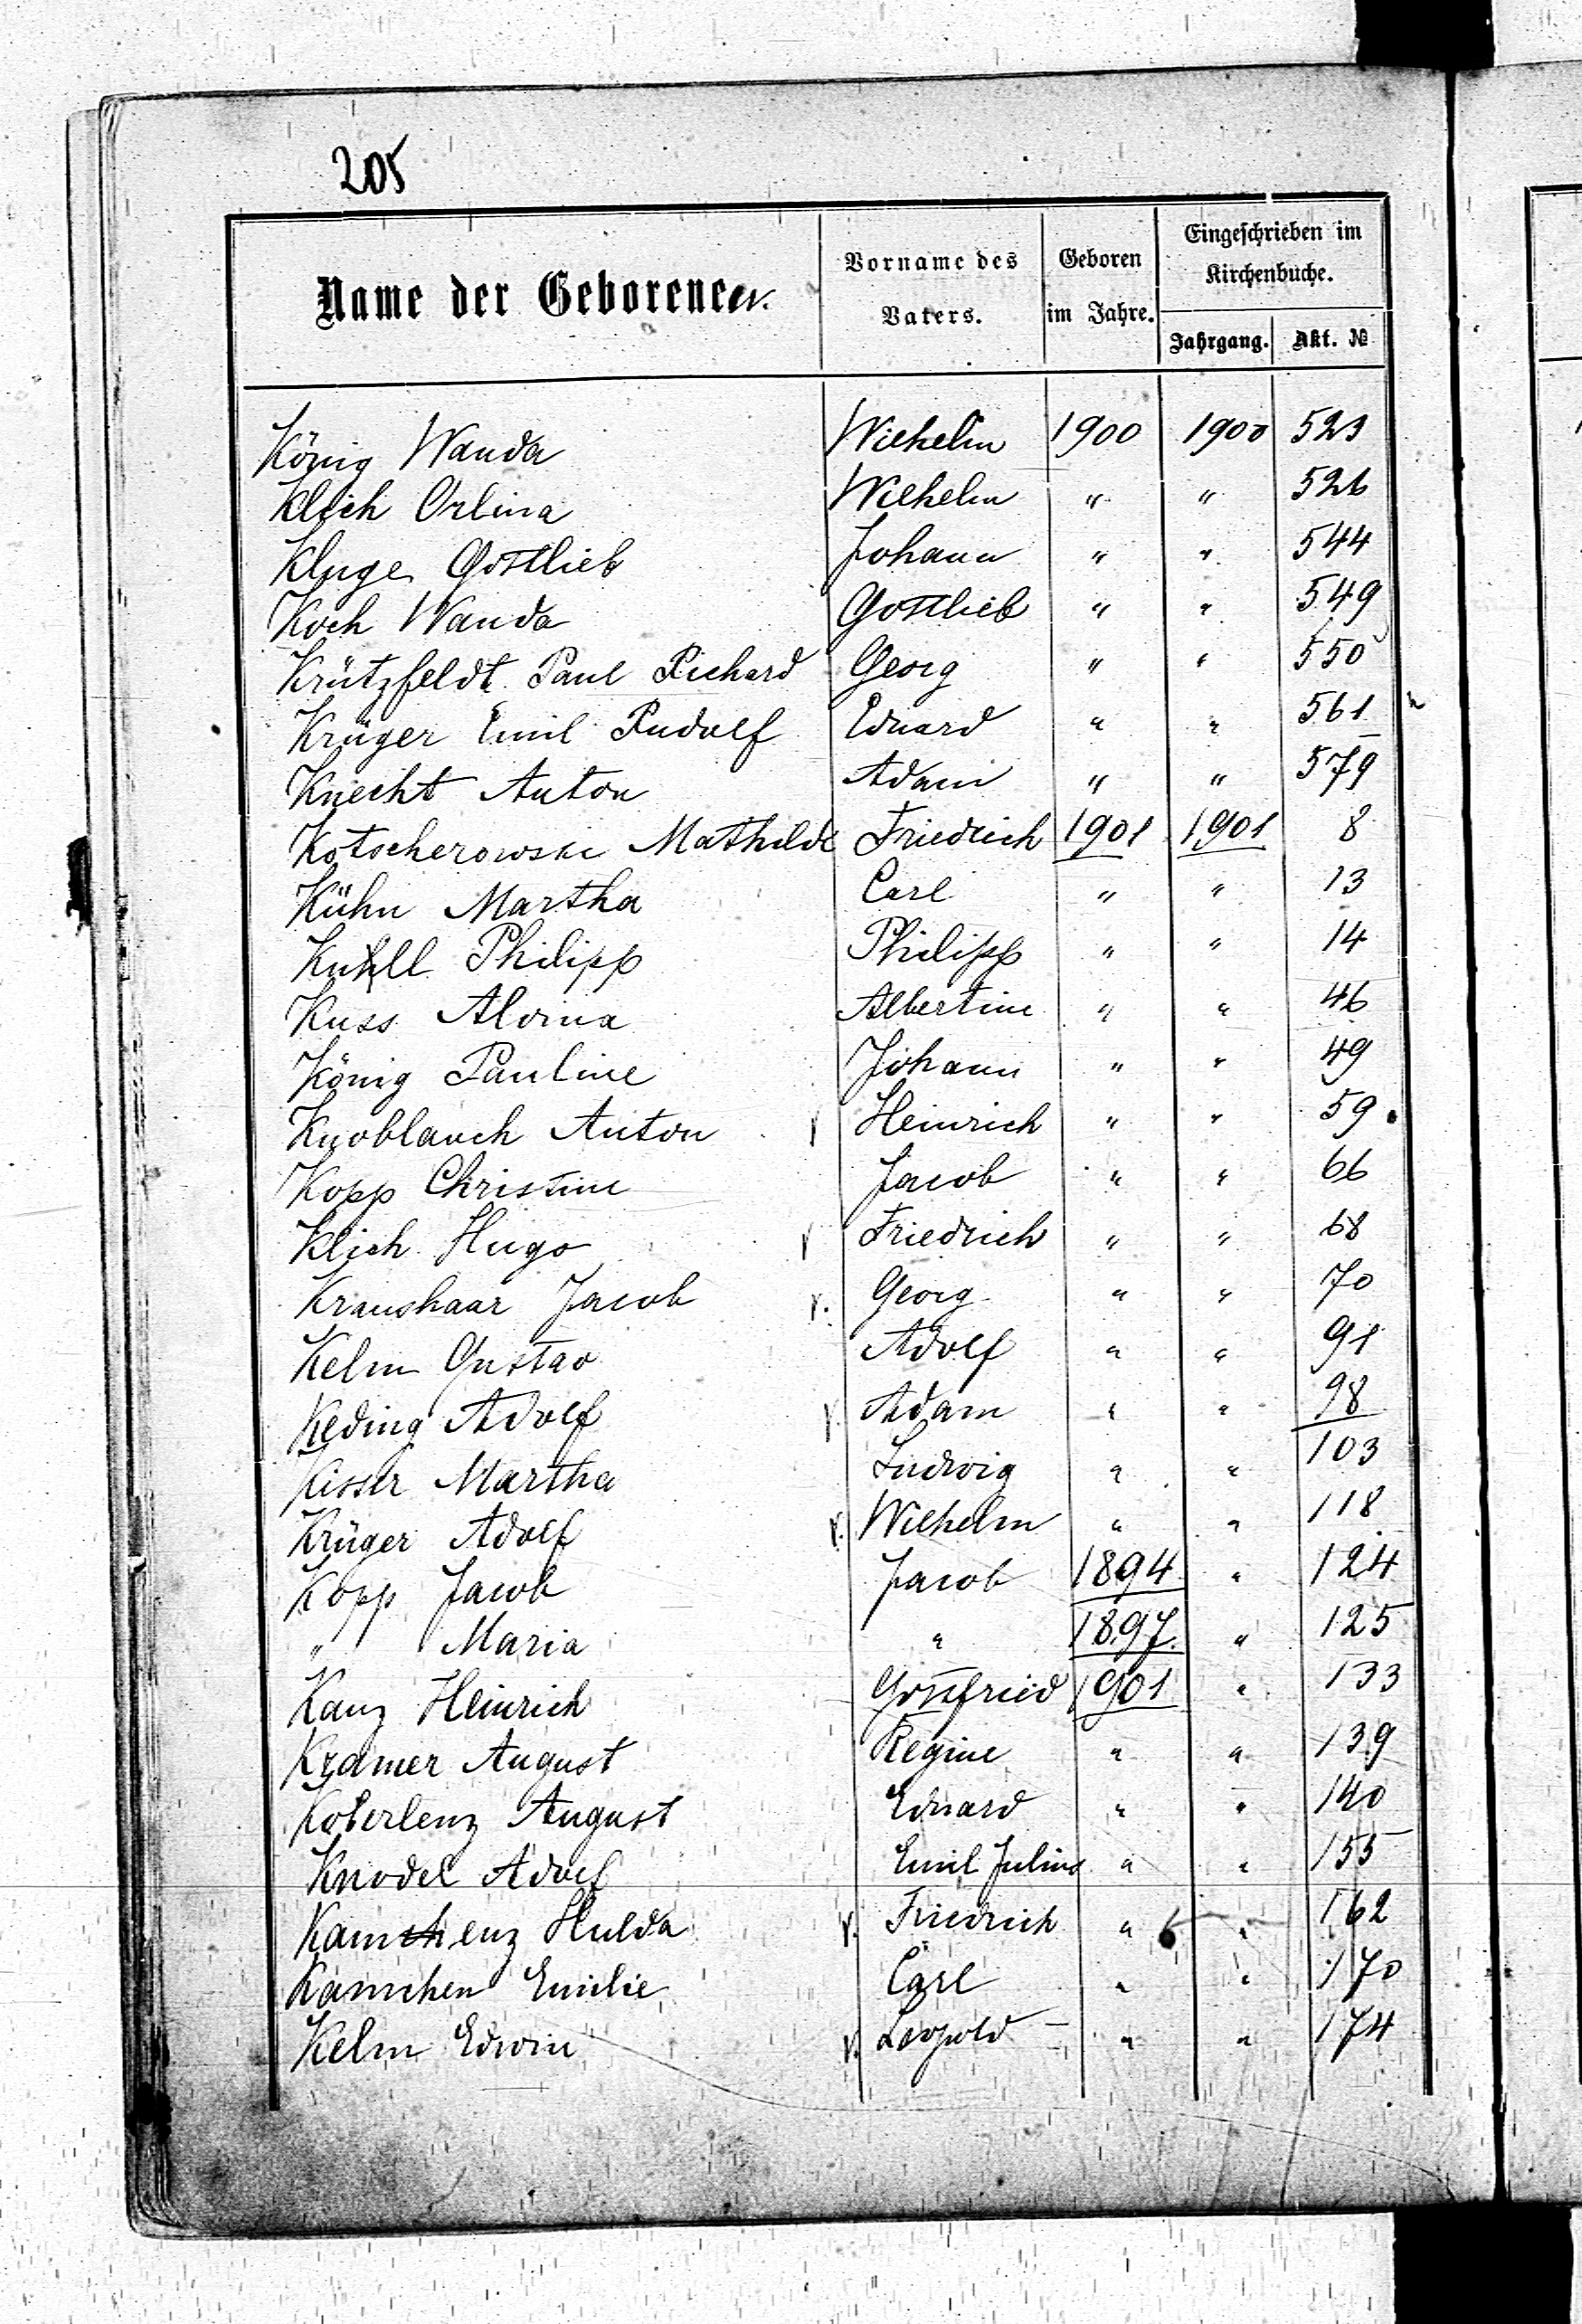 205
Name der Geborenen.
Vorname des Vaters.
Geboren im Jahre.
Eingeschrieben im Kirchenbuche.
Jahrgang. Akt. №
König Wanda Wilhelm 1900 1900 523
Klich Orlina Wilhelm " " 526
Kluge Gottlieb Johann " " 544
Koch Wanda Gottlieb " " 549
Krützfeldt Paul Richard Georg " " 550
Krüger Emil Rudolf Eduard " " 561
Knecht Anton Adam " " 579
Kotscherowski Mathilde Friedrich 1901 1901 8
Kühn Martha Carl " " 13
Philipp Philipp " " 14
Kuss Alvina Albertine " " 46
König Pauline Johann " " 49
Knoblauch Anton Heinrich " " 59
Kopp Christine Jacob " " 66
Klich Hugo Friedrich " " 68
Kraushaar Jacob Georg " " 70
Kelm Gustav Adolf " " 91
Keding Adolf Adam " " 98
Kisser Martha Ludwig " " 103
Krüger Adolf Wilhelm " " 118
Kopp Jacob Jacob 1894 " 124
" Maria " 1897. " 125
Kanz Heinrich Gottfried 1901 " 133
Kramer August Regine " " 139
Koberlenz August Eduard " " 140
Knodel Adolf Emil Julius " " 155
Hulda Friedrich " " 162
Kamchen Emilie Carl " " 170
Kelm Edwin Leopold " " 174